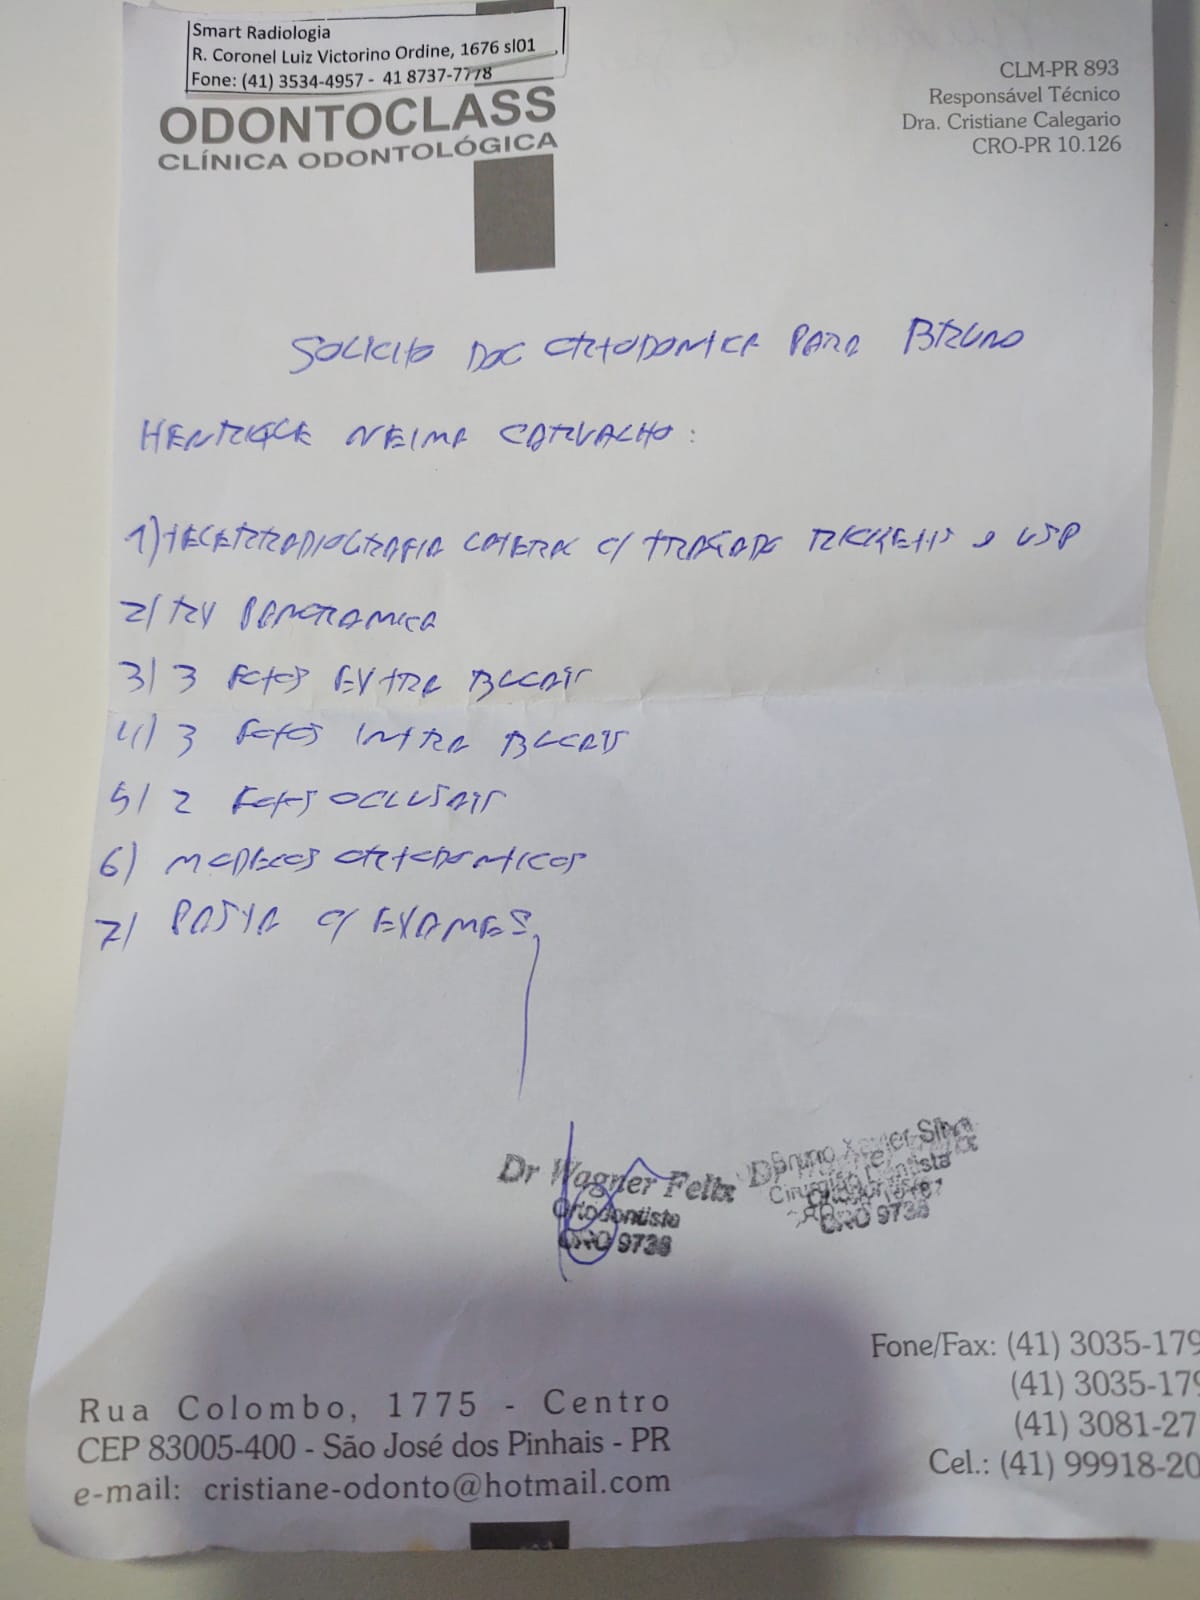 Smart Radiologia
R. Coronel Luiz Victorino Ordine, 1676 sl01
Fone: (41) 3534-4957 - 41 8737-7778
ODONTOCLASS
CLÍNICA ODONTOLÓGICA
CLM-PR 893
Responsável Técnico
Dra. Cristiane Calegario
CRO-PR 10.126
SOLICITO DOC ORTODONTICA PARA BRUNO
HENRIQUE NEIMA CARVALHO:
1) TELERRADIOGRAFIA LATERAL C/ TRAÇADO RICKETTS e USP
2) RX PANORAMICA
3) 3 FOTOS EXTRA BUCAIS
4) 3 FOTOS INTRA BUCAIS
5) 2 FOTOS OCLUSAIS
6) MODELOS ORTODONTICOS
7) PASTA C/ EXAMES
Dr Wagner Felix
Ortodontista
CRO 9738
Bruno Xavier Silva
Cirurgião Dentista
CRO 9738
Rua Colombo, 1775 - Centro
CEP 83005-400 - São José dos Pinhais - PR
e-mail: cristiane-odonto@hotmail.com
Fone/Fax: (41) 3035-179
(41) 3035-179
(41) 3081-27
Cel.: (41) 99918-20